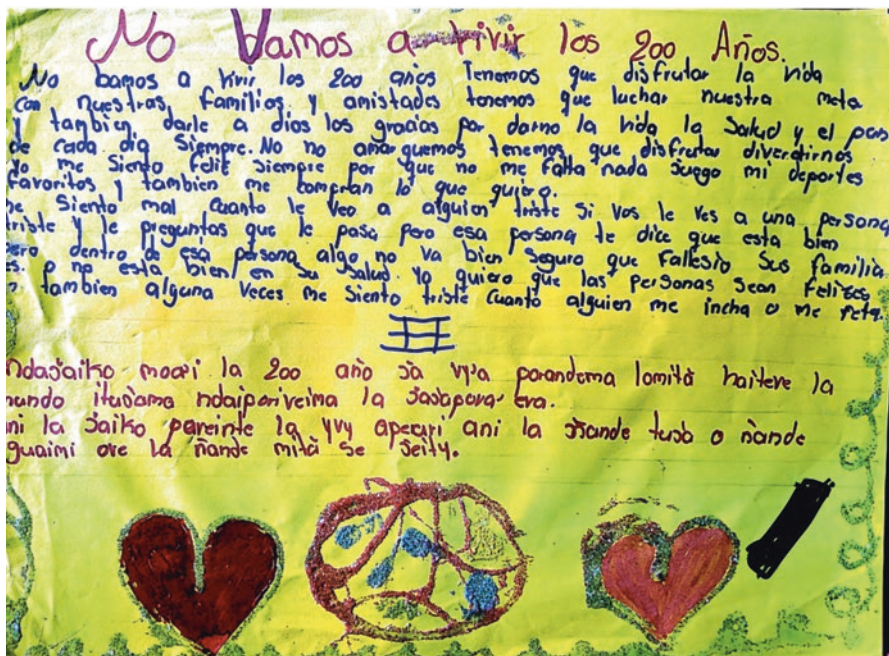 No Vamos a vivir los 200 Años.
No bamos a vivir los 200 años Tenemos que disfrutar la vida
con nuestras familias y amistades tenemos que luchar nuestra meta
y tambien darle a dios las gracias por darno la vida la salud y el pan
de cada dia siempre. No no amarguemos tenemos que disfrutar divertirnos
Yo me siento feliz siempre por que no me falta nada juego mi deportes
favoritos y tambien me compran lo que quiero.
me siento mal cuanto le veo a alguien triste si vos le ves a una persona
triste y le preguntas que le pasa pero esa persona te dice que esta bien
pero dentro de esa persona algo no va bien seguro que fallesio sus familia
es. o no esta bien en su salud. yo quiero que las personas sean felizes
tambien alguna veces me siento triste cuanto alguien me incha o me reta.
ndajaiko moari la 200 año ja vy'a porandema lomitâ haiteve la
mundo itujama ndaiporiveima la jajapova' era.
ani la jaiko pareinte la yvy apeari ani la ñande tuja o ñande
guaimi ove la ñande mitâ se jeity.